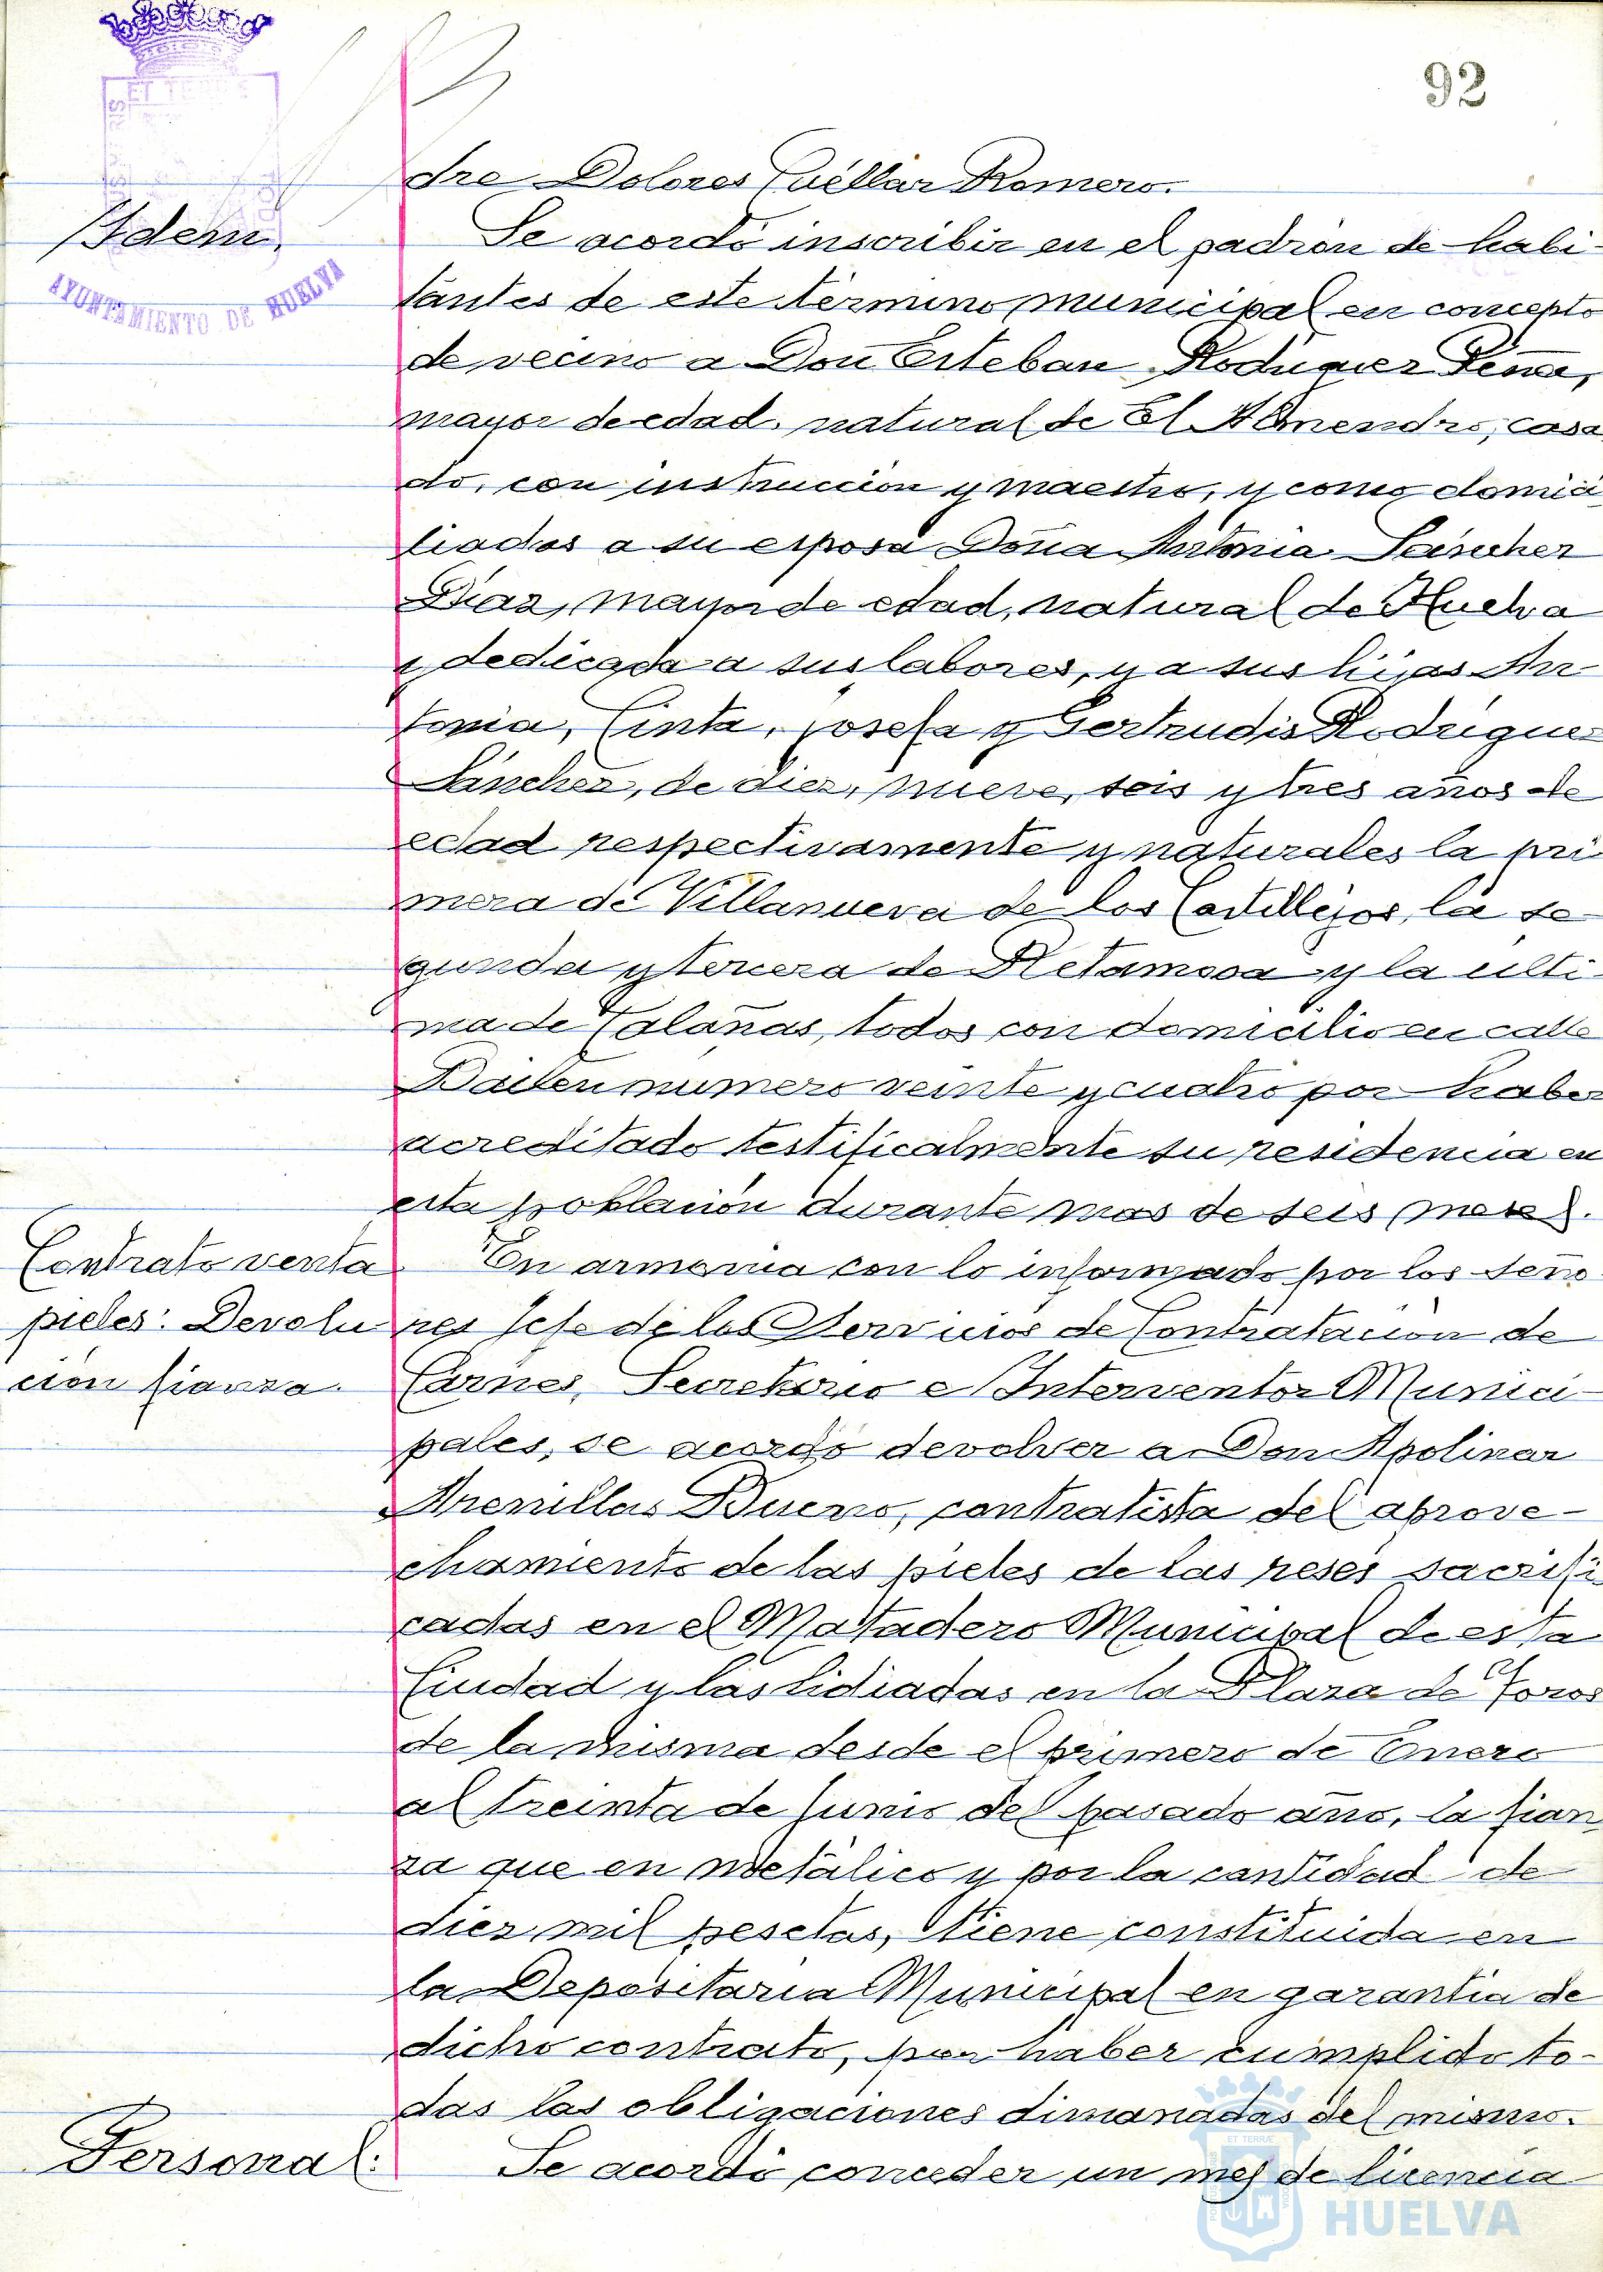 92
dre Dolores Cuéllar Romero.
Idem.
AYUNTAMIENTO DE HUELVA
Se acordó inscribir en el padrón de habi-
tantes de este término municipal en concepto
de vecino a Don Esteban Rodríguez Pena,
mayor de edad, natural de El Almendro, casa
do, con instrucción y maestro, y como domici
liados a su esposa Doña Antonia Sánchez
Díaz, mayor de edad, natural de Huelva
y dedicada a sus labores, y a sus hijas An
tonia, Cinta, Josefa y Gertrudis Rodríguez
Sánchez, de diez, nueve, seis y tres años de
edad respectivamente y naturales la pri
mera de Villanueva de los Castillejos, la se-
gunda y tercera de Retamosa y la ulti-
ma de Calañas, todos con domicilio en calle
Bailen numero veinte y cuatro por haber
acreditado testificalmente su residencia en
esta población durante mas de seis meses.
Contrato venta
pieles: Devolu
ción fianza.
En armonia con lo informado por los Seño
res Jefe de los Servicios de Contratación de
Carnes, Secretario e Interventor Munici-
pales, se acordó devolver a Don Apolinar
Arenillas Bueno, contratista del aprove-
chamiento de las pieles de las reses sacrifi
cadas en el Matadero Municipal de esta
Ciudad y las lidiadas en la Plaza de Toros
de la misma desde el primero de Enero
al treinta de Junio del pasado año, la fian
za que en metálico y por la cantidad de
diez mil pesetas, tiene constituida en
la Depositaria Municipal en garantia de
dicho contrato, por haber cumplido to-
das las obligaciones dimanadas del mismo.
Personal:
Se acordó conceder un mes de licencia
HUELVA